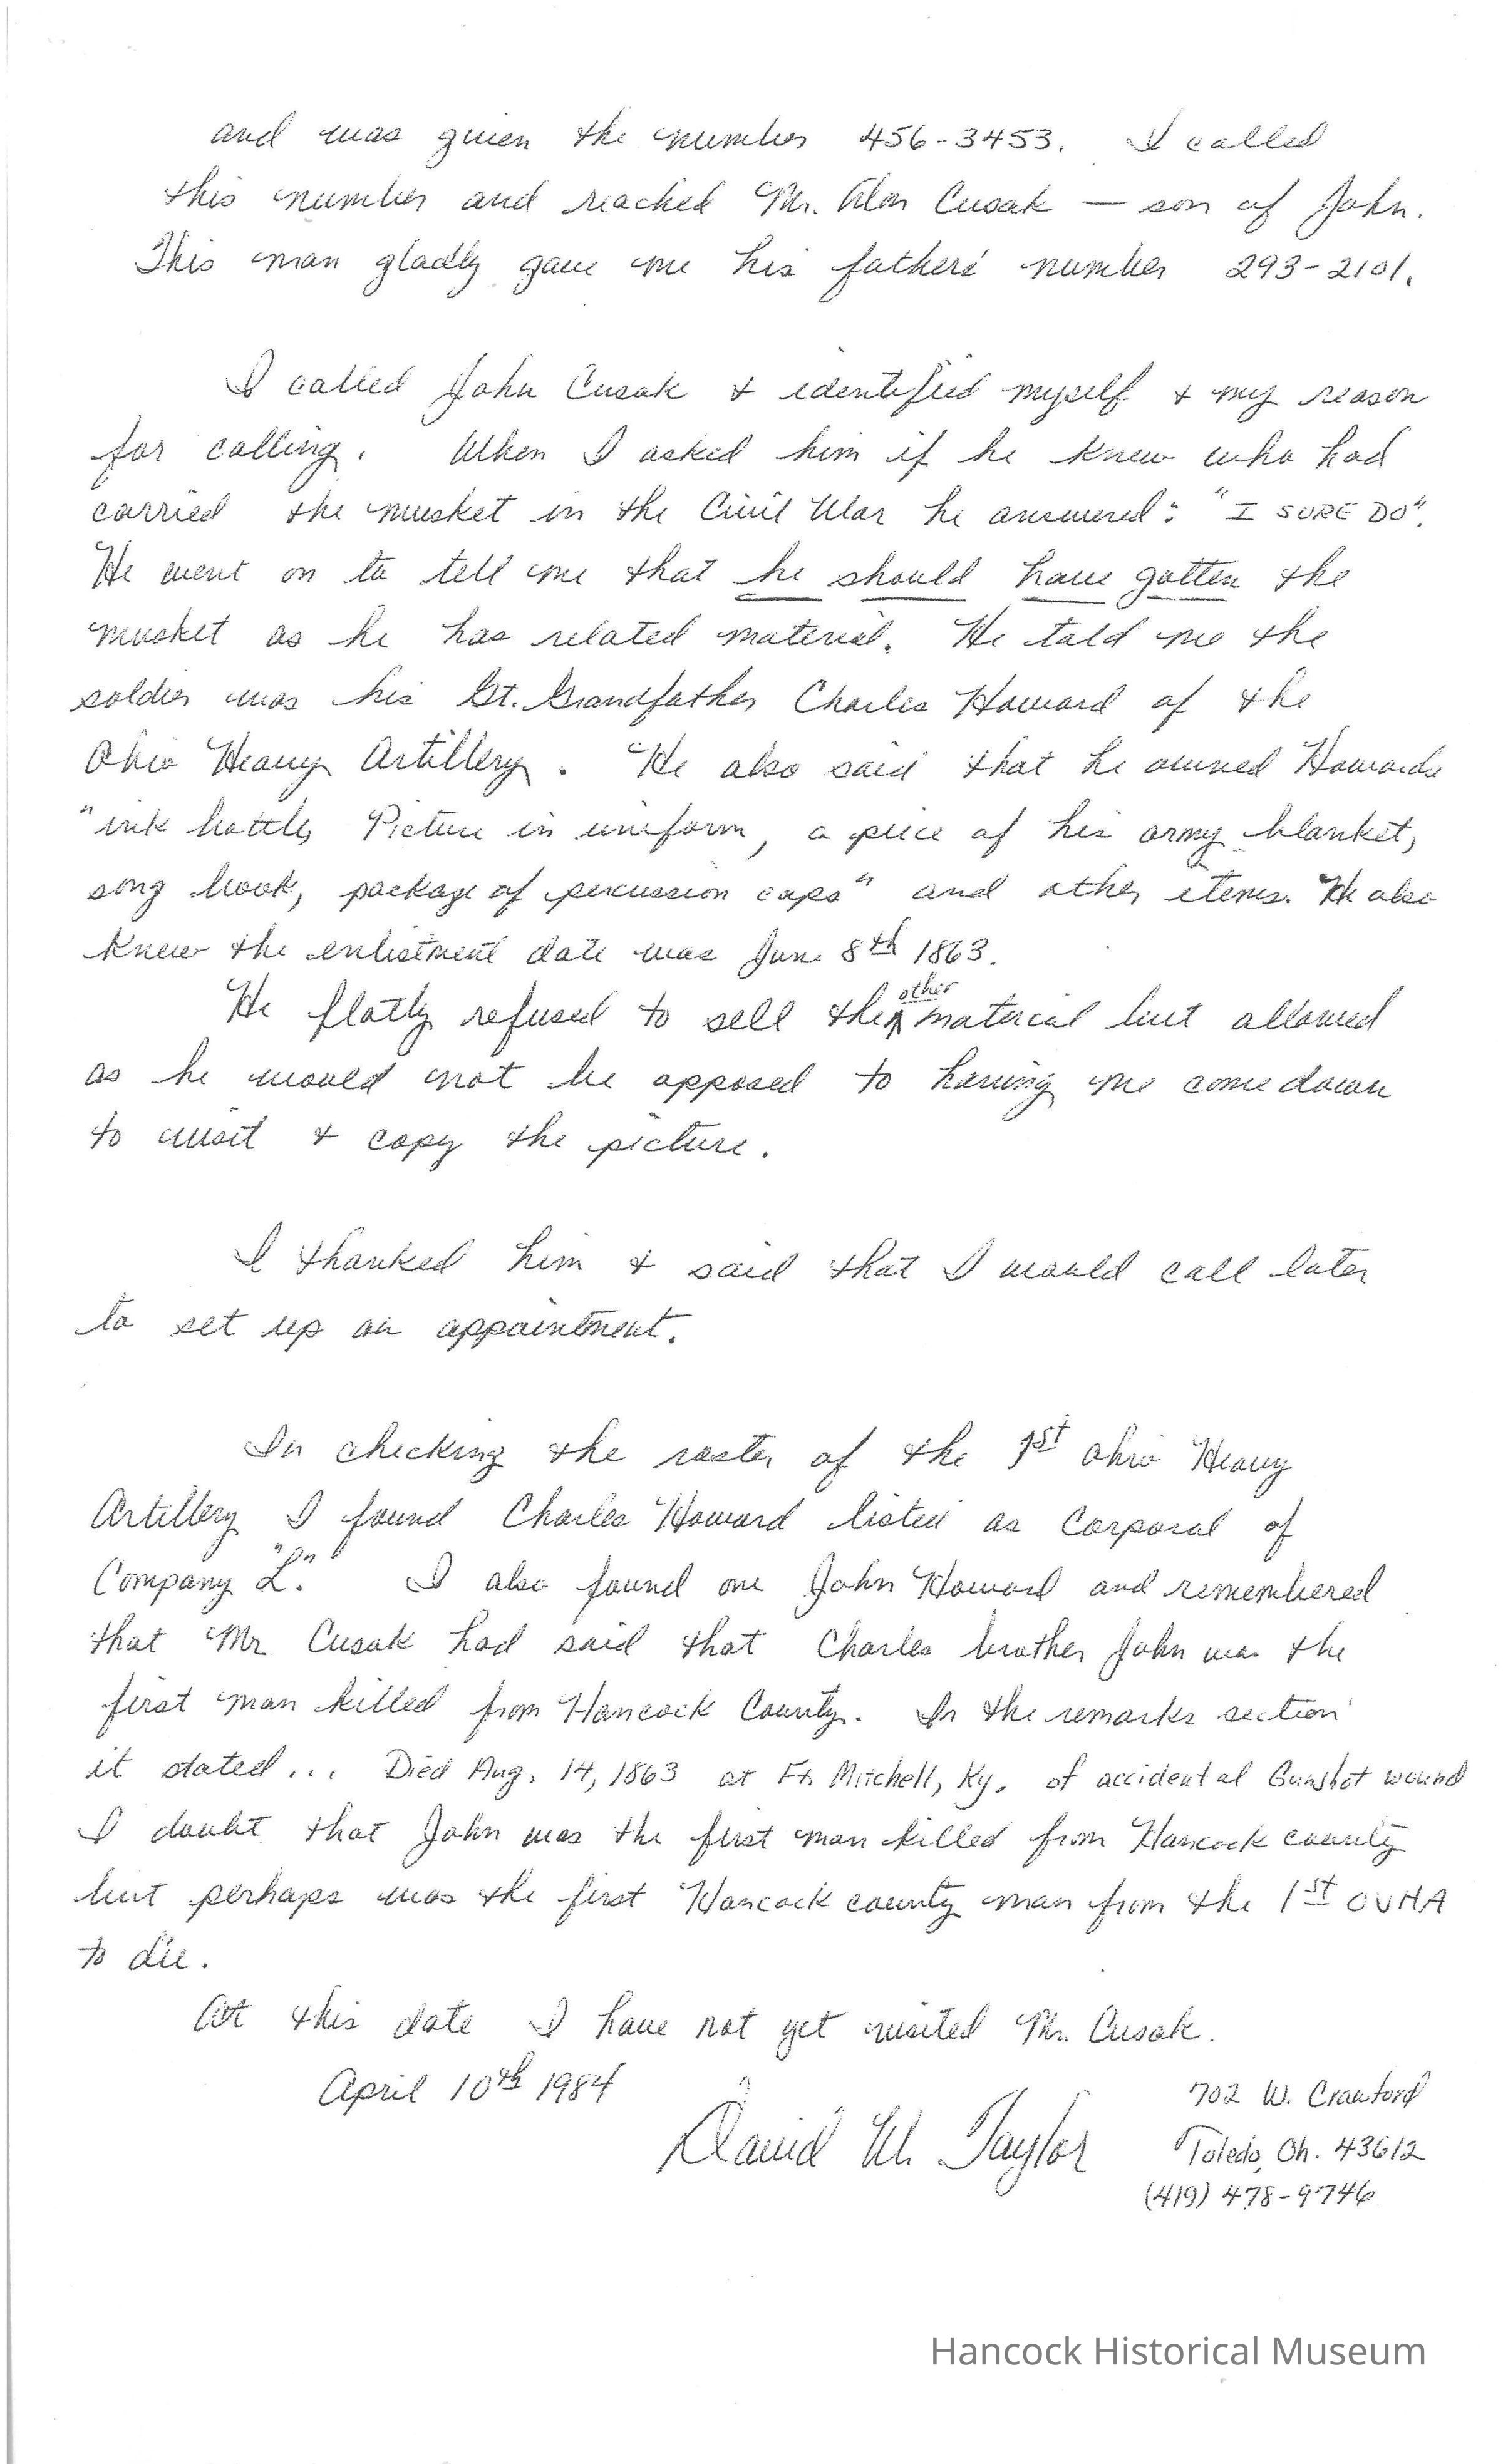 and was given the number 456-3453. I called
this number and reached Mr. Alon Cusak — son of John.
This man gladly gave me his father's number 293-2101.
I called John Cusak & identified myself & my reason
for calling. When I asked him if he knew who had
carried the musket in the Civil War he answered: "I SURE DO".
He went on to tell me that he should have gotten the
musket as he has related material. He told me the
soldier was his Gt. Grandfather Charles Howard of the
Ohio Heavy Artillery. He also said that he owned Howards
"ink bottle, Picture in uniform, a piece of his army blanket,
song book, package of percussion caps" and other items. He also
knew the enlistment date was June 8th 1863.
He flatly refused to sell the other material but allowed
as he would not be opposed to having me come down
to visit & copy the picture.
I thanked him & said that I would call later
to set up an appointment.
In checking the roster of the 1st Ohio Heavy
Artillery I found Charles Howard listed as Corporal of
Company "L."
I also found one John Howard and remembered
that Mr Cusak had said that Charles brother John was the
first man killed from Hancock County. In the remarks section
it stated... Died Aug. 14, 1863 at Ft. Mitchell, Ky. of accidental Gunshot wound
I doubt that John was the first man killed from Hancock county
but perhaps was the first Hancock county man from the 1st OVHA
to die.
At this date I have not yet visited Mr. Cusak.
April 10th 1984
David W. Taylor
702 W. Crawford
Toledo, Oh. 43612
(419) 478-9746
Hancock Historical Museum